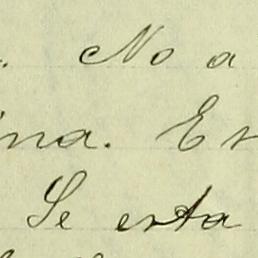 . No a
ina. Es
Se esta